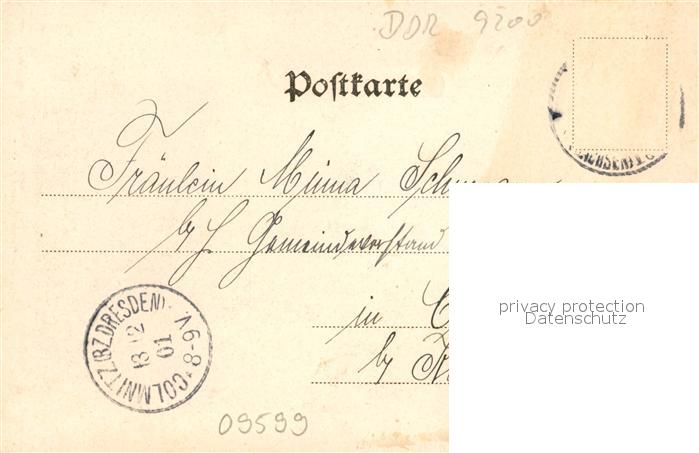 DDR 9200
Postkarte
Fräulein Minna
b/H. Gemeindevorstand
in
by
COLMNITZ (BZ. DRESDEN)
13 12
01
8-9 V.
09599
privacy protection
Datenschutz